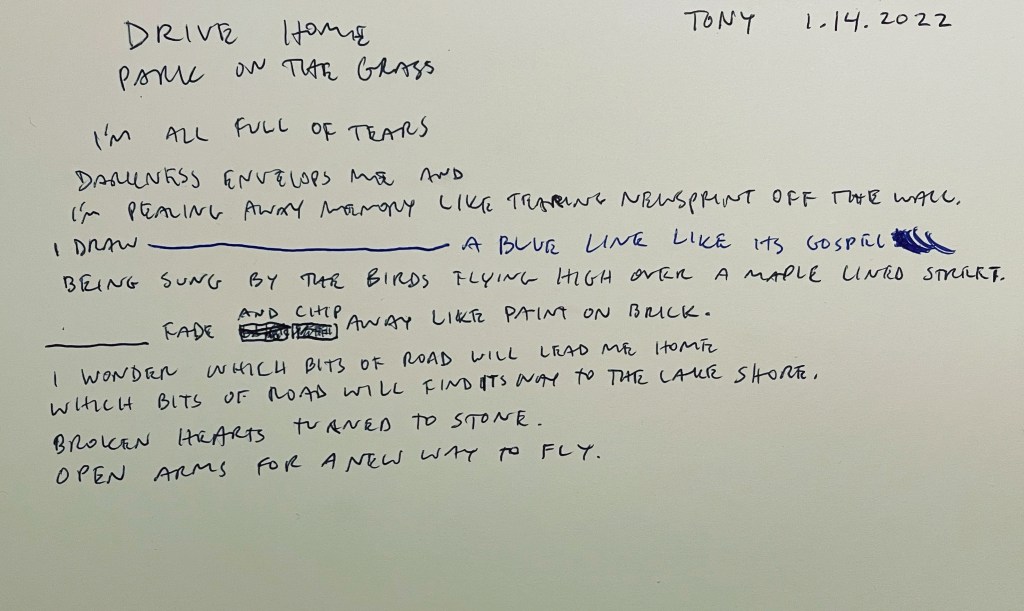 DRIVE HOME
TONY 1.14.2022
PARK ON THE GRASS
I'M ALL FULL OF TEARS
DARKNESS ENVELOPS ME AND
I'M PEALING AWAY MEMORY LIKE TEARING NEWSPRINT OFF THE WALL.
I DRAW A BLUE LINE LIKE ITS GOSPEL
BEING SUNG BY THE BIRDS FLYING HIGH OVER A MAPLE LINED STREET.
FADE AND CHIP AWAY LIKE PAINT ON BRICK.
I WONDER WHICH BITS OF ROAD WILL LEAD ME HOME
WHICH BITS OF ROAD WILL FIND ITS WAY TO THE LAKE SHORE.
BROKEN HEARTS TURNED TO STONE.
OPEN ARMS FOR A NEW WAY TO FLY.